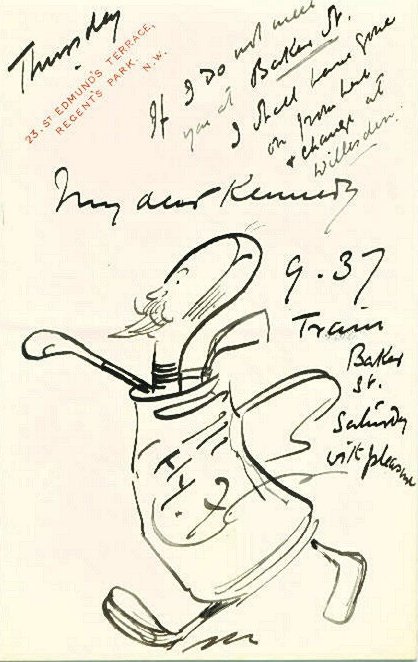 Thursday
23, ST EDMUND'S TERRACE,
REGENT'S PARK.
N.W.
If I do not meet
you at Baker St.
I shall have gone
on from here
& change at
Willesden.
My dear Kennedy
9.37
Train
Baker
St.
Saturday
with pleasure